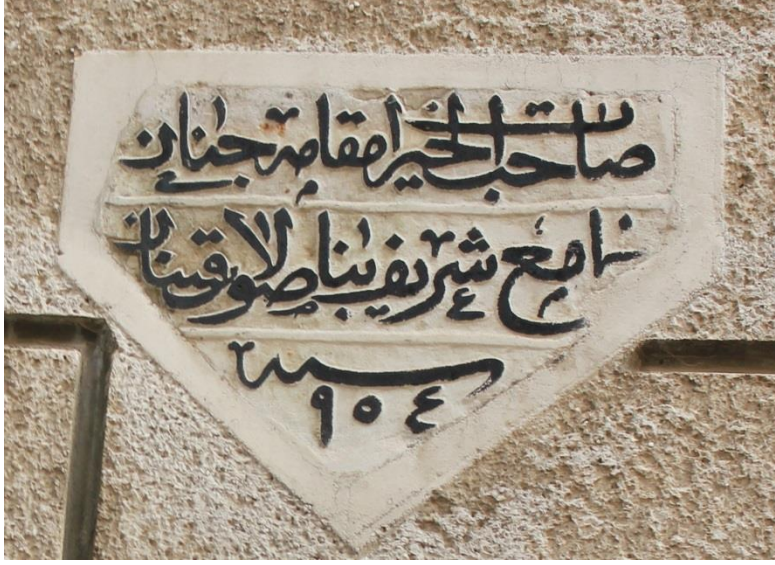 صاحب الخيرا مقامه جنان
جامع شريف بنا صولاق سنان
سنه
٩٥٤